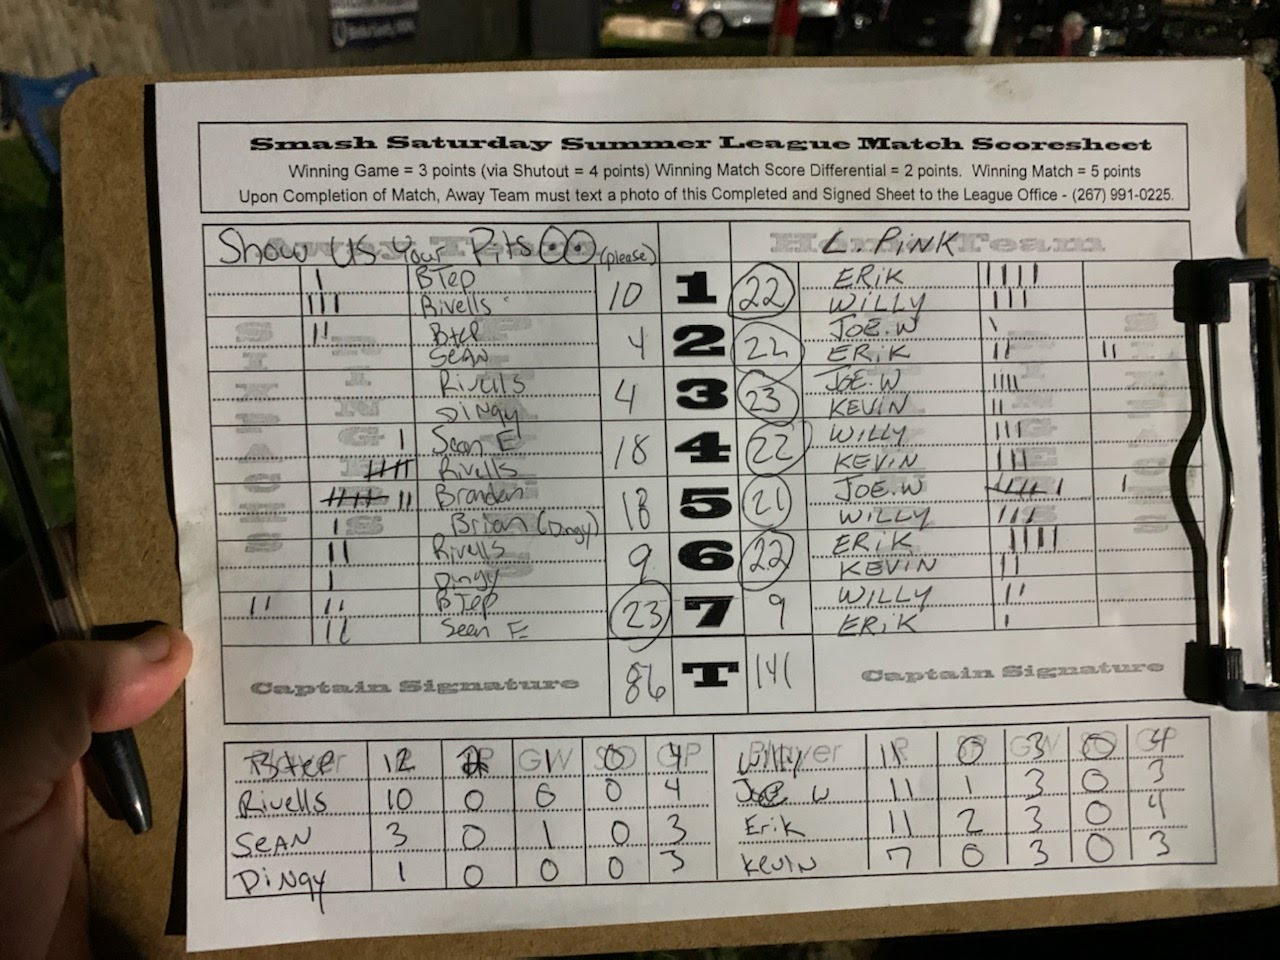 Smash Saturday Summer League Match Scoresheet
Winning Game = 3 points (via Shutout = 4 points) Winning Match Score Differential = 2 points. Winning Match = 5 points
Upon Completion of Match, Away Team must text a photo of this Completed and Signed Sheet to the League Office - (267) 991-0225.
Show Us Your Pits (please) L. PINK Home Team
BTep 10 1 22 ERIK
Rivells WILLY
Btep 4 2 22 JOE.W
SEAN ERIK
Rivells 4 3 23 JOE.W
Dingy KEVIN
Sean E 18 4 22 WILLY
Rivells KEVIN
Branden 18 5 21 JOE.W
Brian (Dingy) WILLY
Rivells 9 6 22 ERIK
Dingy KEVIN
BTep 23 7 9 WILLY
Sean E ERIK
Captain Signature 86 T 141 Captain Signature
Btep 12 GW 1 0 4 Willy Player 11 0 3 0 4
Rivells 10 0 0 0 4 Joe W 11 1 3 0 3
SEAN 3 0 1 0 3 Erik 11 2 3 0 4
Dingy 1 0 0 0 3 Kevin 7 0 3 0 3